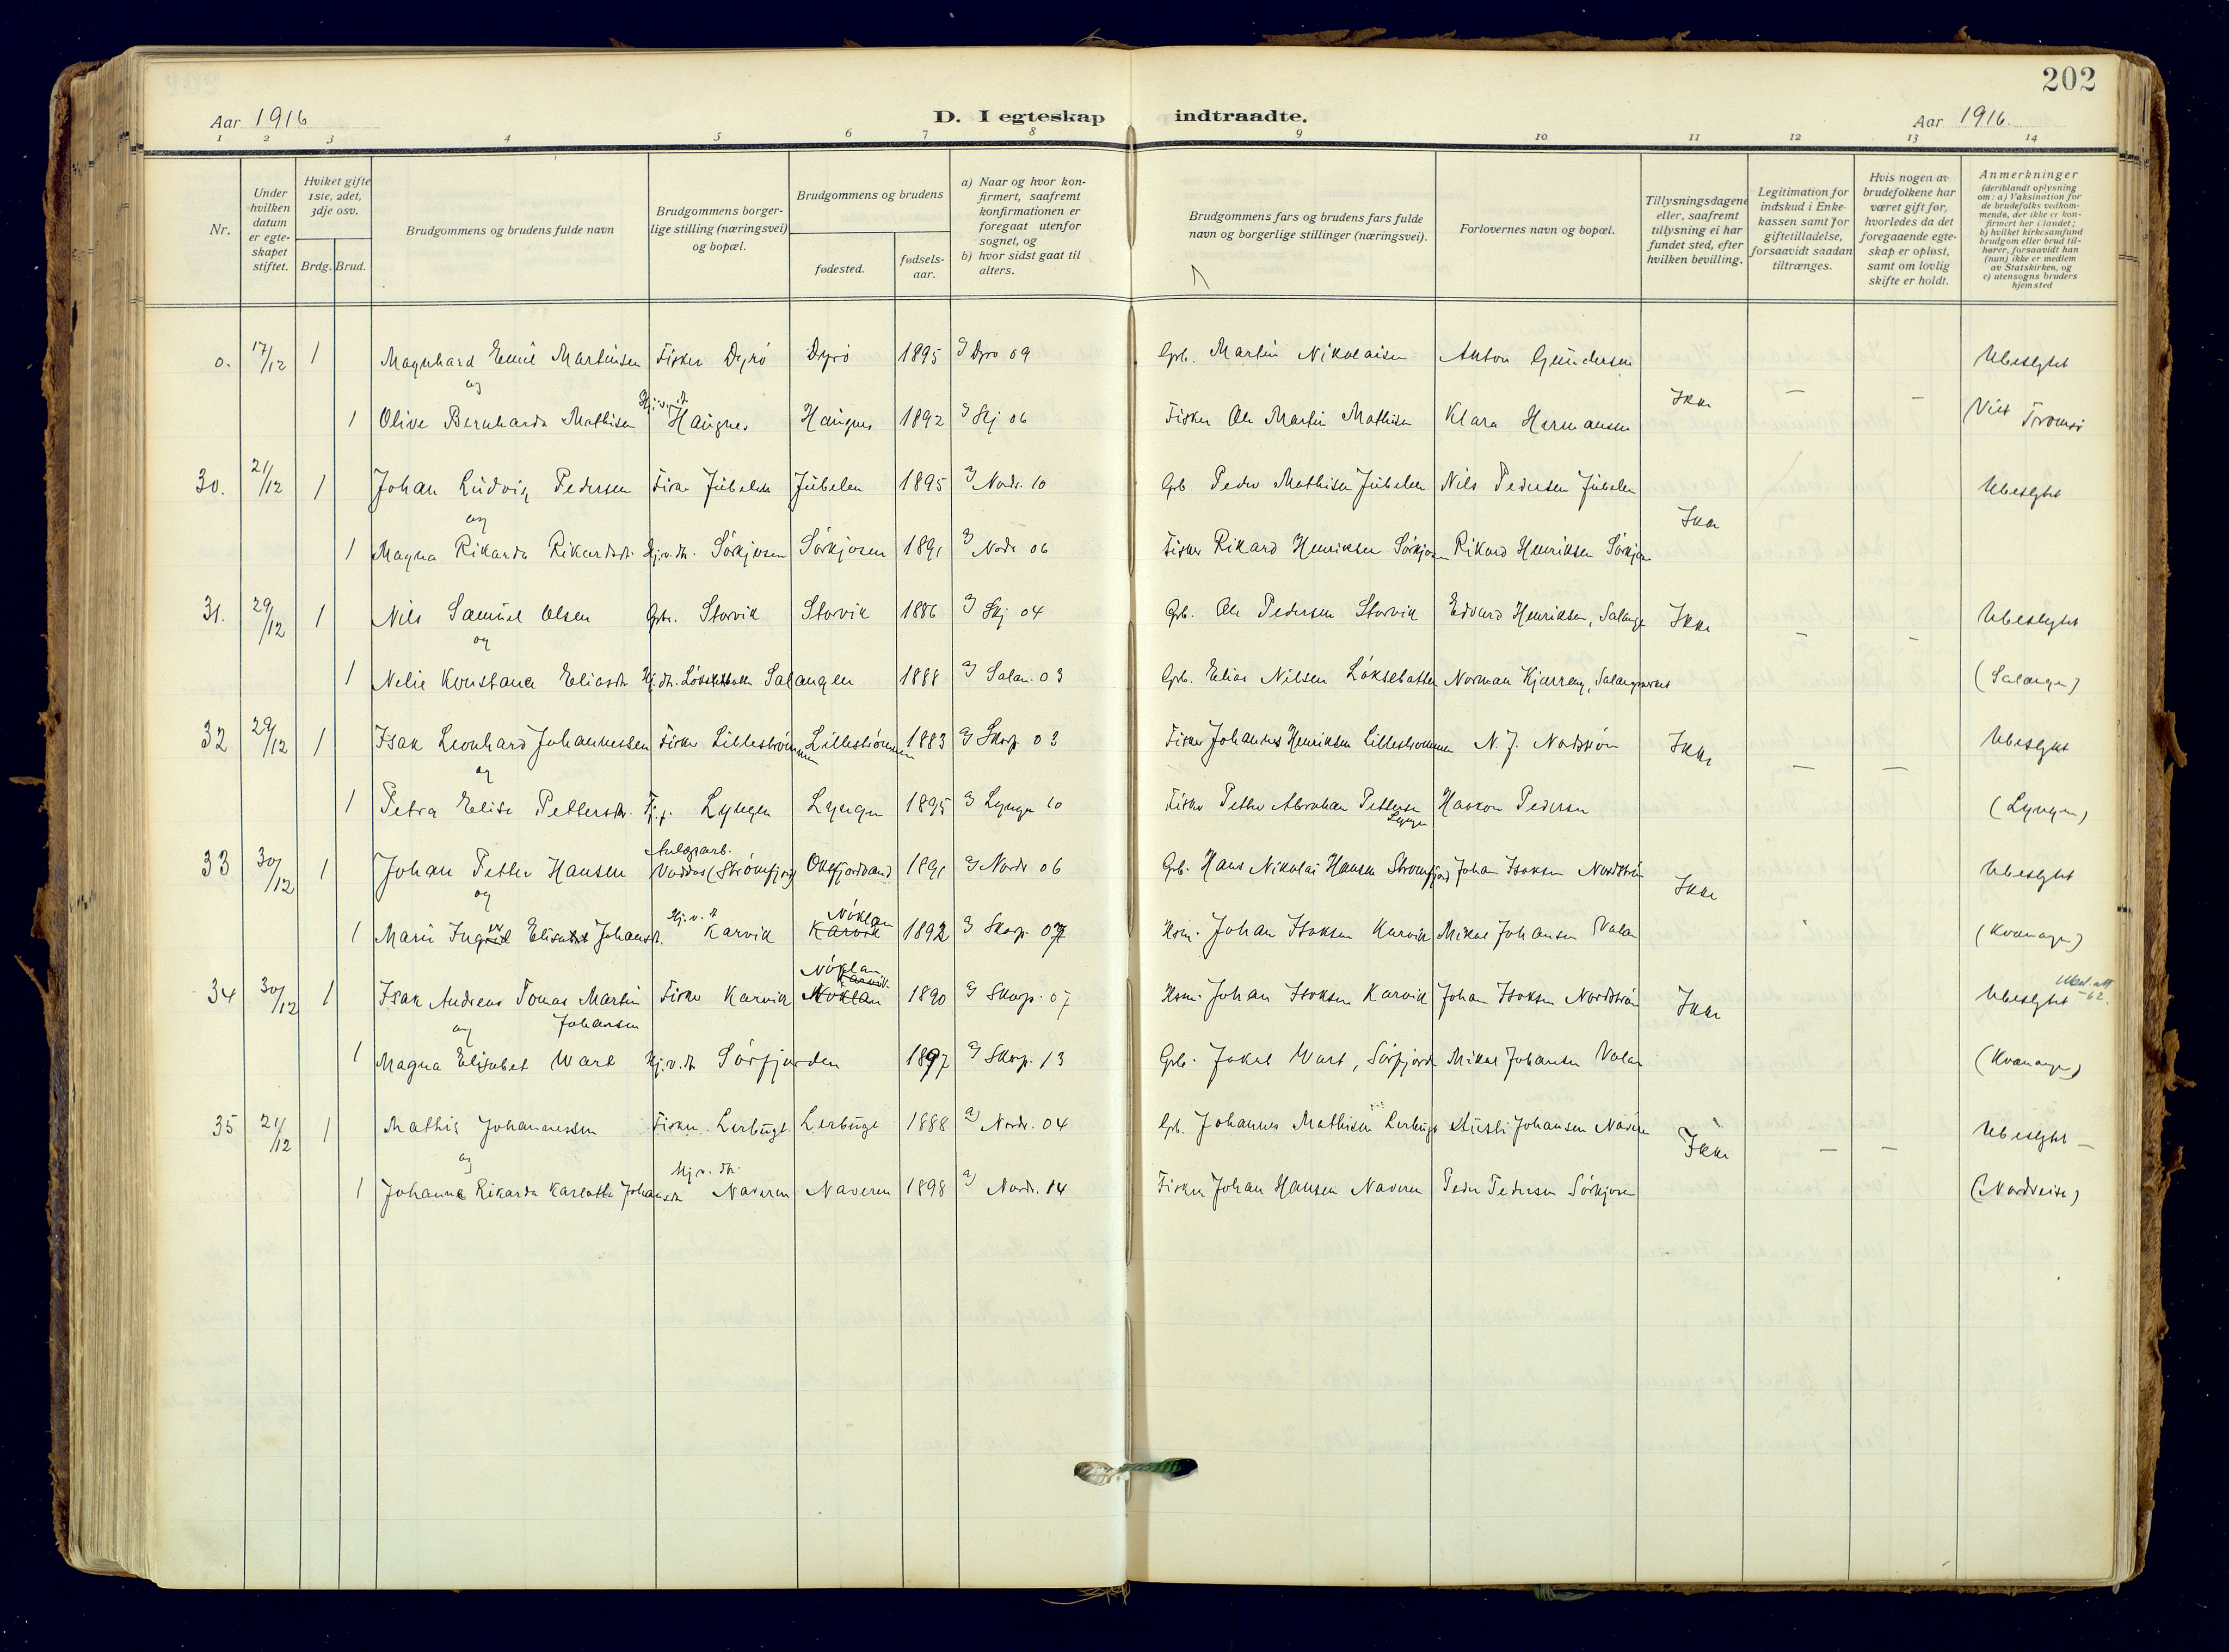 202
Aar 1916
D. I egteskap indtraadte.
Aar 1916.
1 2 3 4 5 6 7 8 9 10 11 12 13 14
Nr.
Under hvilken datum er egteskapet stiftet.
Hvilket gifte 1ste, 2det, 3dje osv.
Brdg. Brud.
Brudgommens og brudens fulde navn
Brudgommens borgerlige stilling (næringsvei) og bopæl.
Brudgommens og brudens
fødested.
fødselsaar.
a) Naar og hvor konfirmert, saafremt konfirmationen er foregaat utenfor sognet, og
b) hvor sidst gaat til alters.
Brudgommens fars og brudens fars fulde navn og borgerlige stillinger (næringsvei).
Forlovernes navn og bopæl.
Tillysningsdagene eller, saafremt tillysning ei har fundet sted, efter hvilken bevilling.
Legitimation for indskud i Enkekassen samt for giftetilladelse, forsaavidt saadan tiltrænges.
Hvis nogen av brudefolkene har været gift før, hvorledes da det foregaaende egteskap er opløst, samt om lovlig skifte er holdt.
Anmerkninger (deriblandt oplysning om: a) Vaksination for de brudefolks vedkommende, der ikke er konfirmert her i landet; b) hvilket kirkesamfund brudgom eller brud tilhører, forsaavidt han (hun) ikke er medlem av Statskirken, og c) utensogns bruders hjemsted
0. 17/12 1 Magnhard Emil Martinsen Fisker Dyrö Dyrö 1895 a) Dyrö 09 Grb. Martin Nikolaisen Anton Gundersen Ubeslgtet
og
1 Olive Bernharda Mathisen Hj.v.dt. Haugnes Haugnes 1892 a) Skj 06 Fisker Ole Martin Mathisen Klara Hermansen Ikke — — Viet Tromsö
30. 21/12 1 Johan Ludvig Pedersen Fisker Jubelen Jubelen 1895 a) Nordr. 10 Grb. Peder Mathisen Jubelen Nils Pedersen Jubelen Ubeslgtet
og Ikke
1 Magna Rikarda Rikardsdt. Hj.v.dt. Sörkjosen Sörkjosen 1891 a) Nordr 06 Fisker Rikard Henriksen Sörkjosen Rikard Henriksen Sörkjosen
31. 29/12 1 Nils Samuel Olsen Gbr. Storvik Storvik 1886 a) Skj 04 Grb. Ole Pedersen Storvik Edvard Henriksen, Salangen Ikke — — Ubeslgtet
og
1 Nelie Konstance Eliasdt. Hj.dt. Salangen 1888 a) Salan. 03 Grb. Elias Nilsen Löksebotten Norman Kjærreng, Salangsverket (Salangen)
32 29/12 1 Isak Leonhard Johannessen Fisker Lilleströmmen Lilleströmmen 1883 a) Skerp. 03 Fisker Johannes Henriksen Lilleströmmen N. J. Nordström Ikke — — Ubeslgtet
og
1 Petra Elise Pettersdt. Lyngen Lyngen 1895 a) Lyngen 10 Fisker Petter Abraham Pettersen Lyngen Haakon Pedersen (Lyngen)
33 30/12 1 Johan Petter Hansen Anlegsarb. Vaddas (Strömfjord) Oksfjordvand 1891 a) Nordr 06 Grb. Hans Nikolai Hansen Strömfjord Johan Isaksen Nordström Ikke Ubeslgtet
og
1 Marie Elisabet Johansdt. Hj.v.dt Karvik Nöklan Karvik 1892 a) Skerp. 07 Hsm. Johan Isaksen Karvik Mikal Johansen Valan (Kvænangen)
34 30/12 1 Isak Andreas Tomas Martin Johansen Fisker Karvik Nöklan Karvik Nöklan 1890 a) Skerp. 07 Hsm. Johan Isaksen Karvik Johan Isaksen Nordström Ikke Ubeslgtet Utsk. att -62.
og
1 Magna Elisabet Wart Hj.v.dt Sörfjorden 1897 a) Skerp. 13 Grb. Jakob Wart, Sörfjord Mikal Johansen Valan (Kvænangen)
35 21/12 1 Mathis Johannessen Fisker Lerbugt Lerbugt 1888 a) Nordr. 04 Grb. Johannes Mathisen Lerbugt Johansen Naveren Ikke — — Ubeslgtet —
og
1 Johanna Rikarda Karlotte Johansdt. Hj.v.dt. Naveren Naveren 1898 a) Nordr. 14 Fisker Johan Hansen Naveren Peder Pedersen Sörkjosen (Nordreisa)